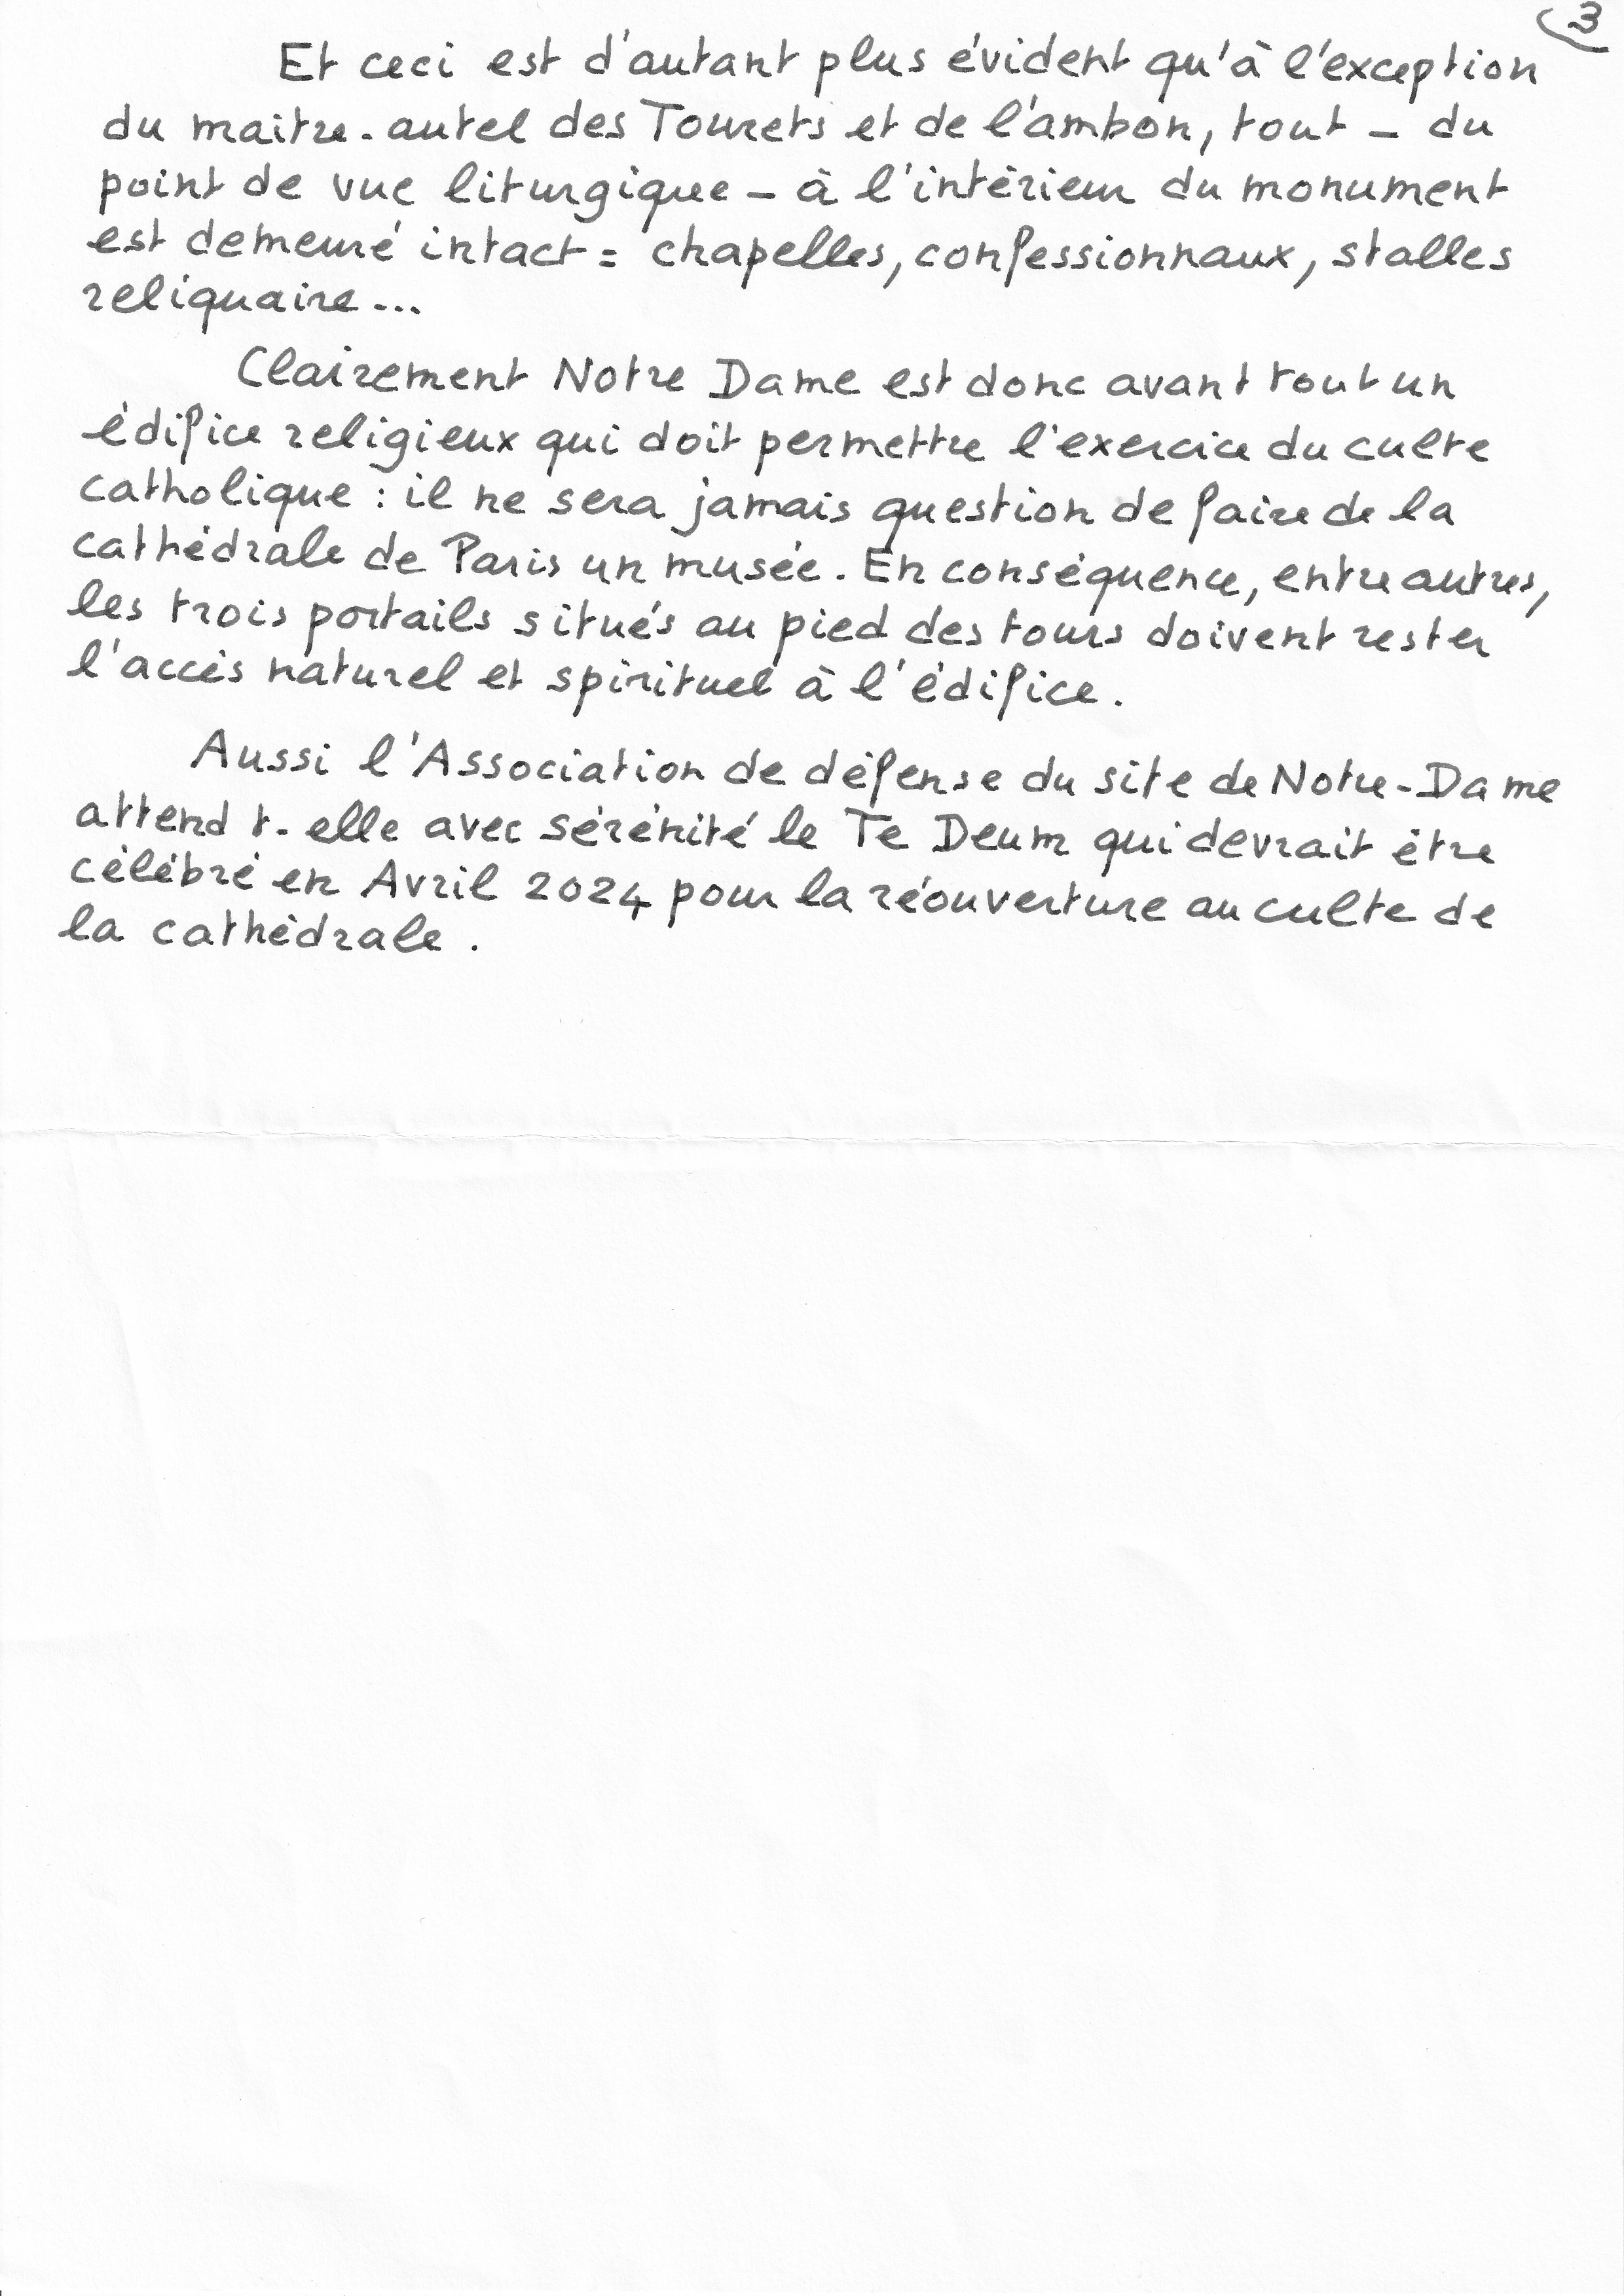 3
Et ceci est d'autant plus évident qu'à l'exception
du maitre-autel des Tourets et de l'ambon, tout - du
point de vue liturgique - à l'intérieur du monument
est demeuré intact = chapelles, confessionnaux, stalles
reliquaire...
Clairement Notre Dame est donc avant tout un
édifice religieux qui doit permettre l'exercice du culte
catholique : il ne sera jamais question de faire de la
cathédrale de Paris un musée. En conséquence, entre autres,
les trois portails situés au pied des tours doivent rester
l'accès naturel et spirituel à l'édifice.
Aussi l'Association de défense du site de Notre-Dame
attend t-elle avec sérénité le Te Deum qui devrait être
célébré en Avril 2024 pour la réouverture au culte de
la cathédrale.